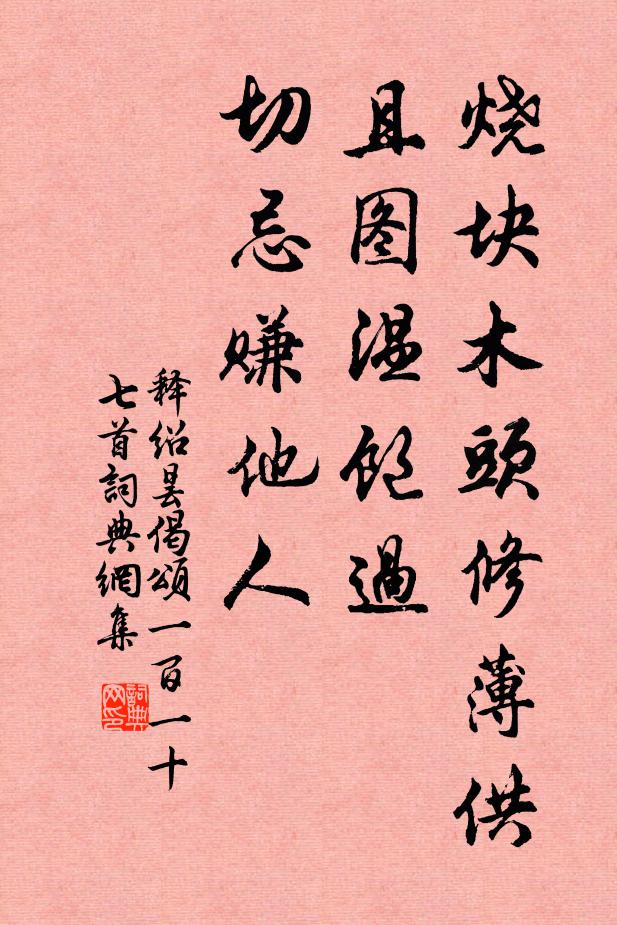 烧块木頭修薄供
且图温飽過
切忌嫌他人
释绍昙偈頌一百一十
七首詞典網集
詞典网印